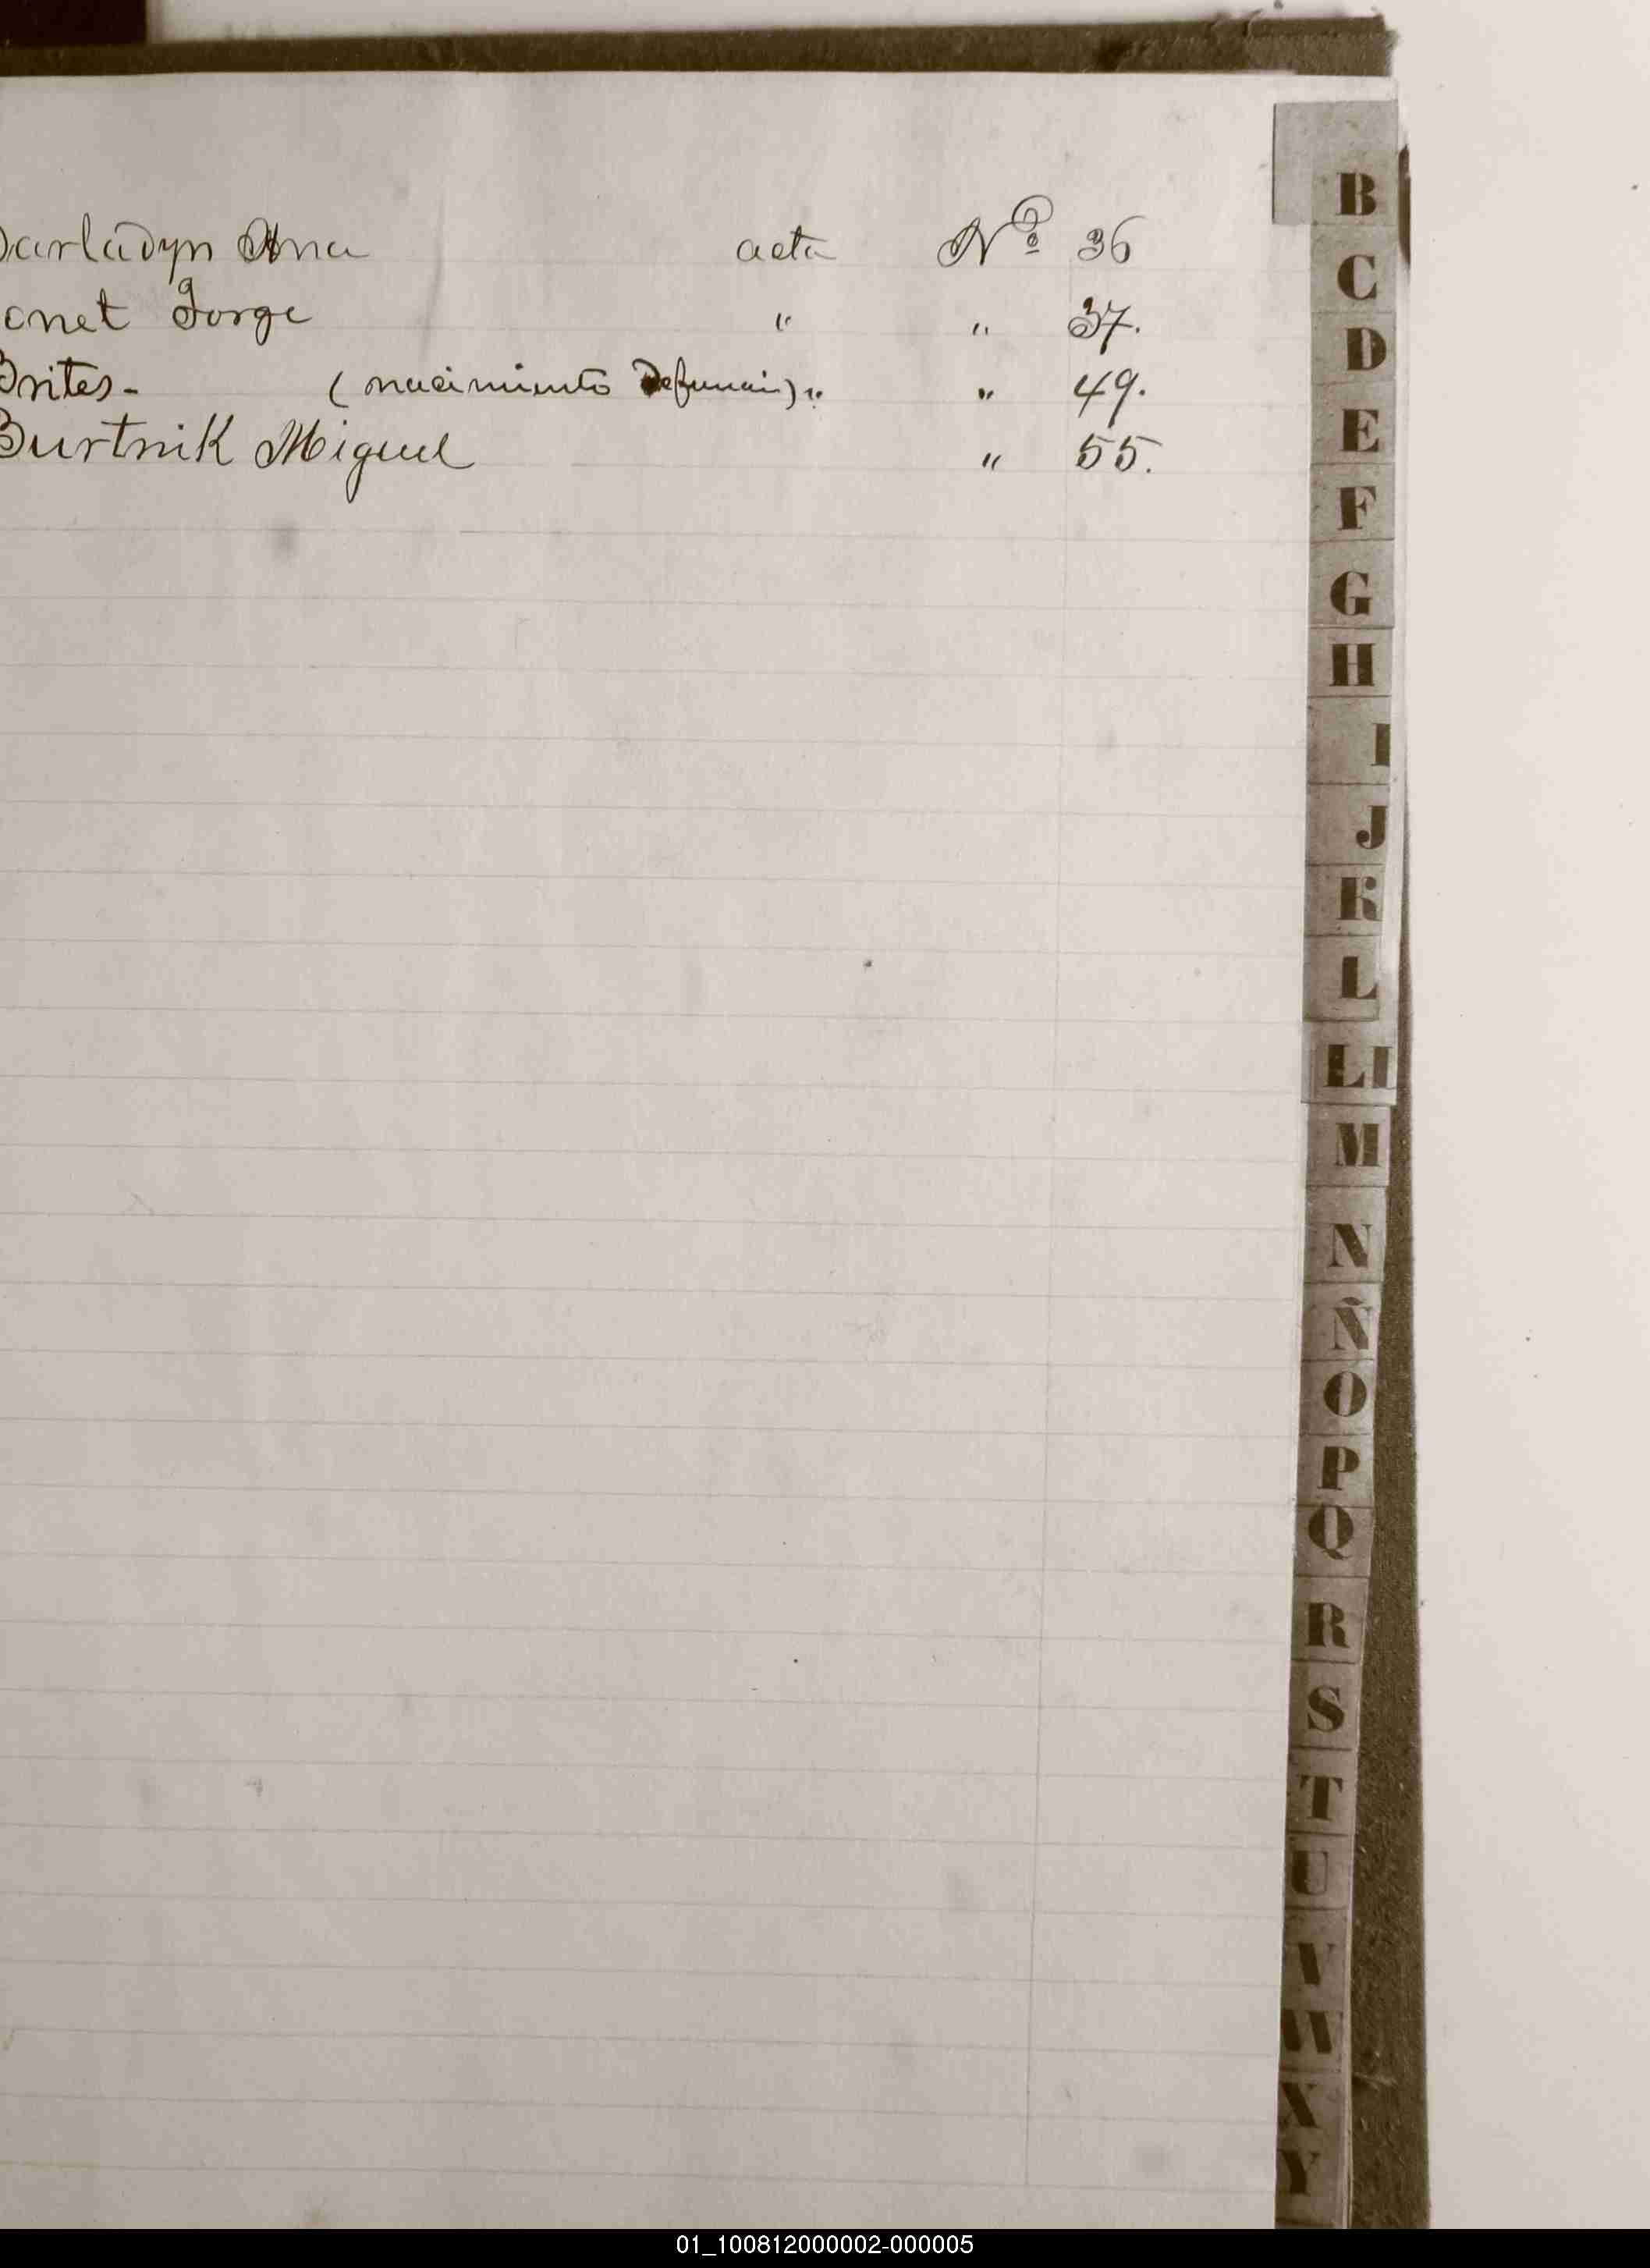 Barladyn Ana acta Nº 36
onet Jorge " " 37.
Brites- (nacimiento Defunción) " " 49.
Burtnik Miguel " 55.
B
C
D
E
F
G
H
I
J
K
L
LL
M
N
Ñ
O
P
Q
R
S
T
U
V
W
X
Y
01_100812000002-000005